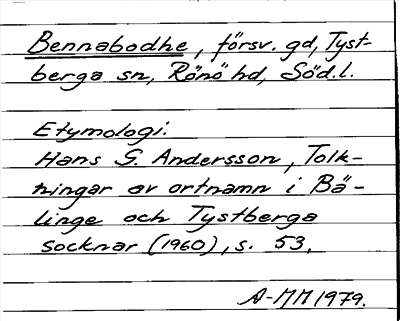 Bennabodhe, försv. gd, Tyst-
berga sn, Rönö hd, Söd.l.
Etymologi:
Hans G. Andersson, Tolk-
ningar av ortnamn i Bä-
linge och Tystberga
socknar (1960), s. 53.
A-MM 1979.